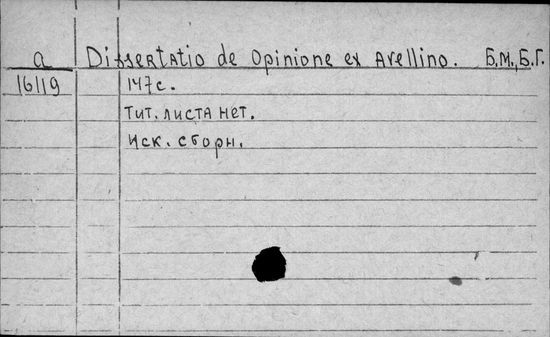 a Dissertatio de Opinione ex Avellino. Б.М., Б.Г.
16119 147с.
Тит. листа нет.
Иск. сборн.